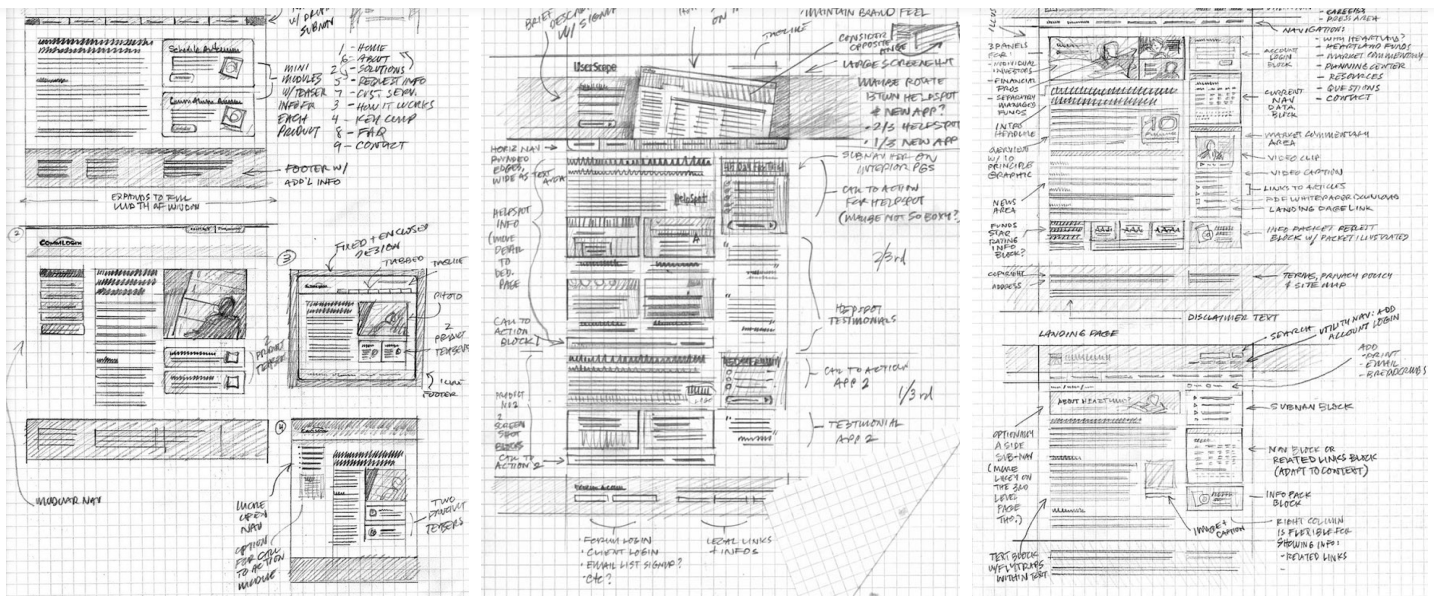 W/ DROP
SUBNAV
1 - HOME
6 - ABOUT
2 - SOLUTIONS
5 - REQUEST INFO
7 - CUST. SERV.
3 - HOW IT WORKS
4 - KEY COMP
8 - FAQ
9 - CONTACT
MINI
MODULES
W/TEASER
INFO FOR
EACH
PRODUCT
FOOTER W/
ADD'L INFO
EXPANDS TO FULL
WIDTH OF WINDOW
2
3
FIXED + ENCLOSED
DESIGN
TABBED
TAGLINE
PHOTO
2
PRODUCT
TEASERS
2
PRODUCT
TEASERS
FOOTER
4
MODULAR NAV
MORE
OPEN
NAV
OPTION
FOR CALL
TO ACTION
MODULE
TWO
PRODUCT
TEASERS
BRIEF
W/ SIGNUP
MAINTAIN BRAND FEEL
TAGLINE
CONSIDER
OPPOSITE
ANGLE
UserScope
LARGE SCREENSHOT
MAYBE ROTATE
BTWN HELPSPOT
& NEW APP?
• 2/3 HELPSPOT
• 1/3 NEW APP
HORIZ NAV
ROUNDED
EDGES,
WIDE AS TEXT
AREA
SUBNAV HERE ON
INTERIOR PGS
CALL TO ACTION
FOR HELPSPOT
(MAYBE NOT SO BOXY?)
HelpSpot
HELPSPOT
INFO
(MORE
DETAIL
TO
DED.
PAGE
2/3rd
HELPSPOT
TESTIMONIALS
CALL TO
ACTION
BLOCK
CALL TO ACTION
APP 2
1/3rd
PRODUCT
NO. 2
2
SCREEN
SHOT
BLOCKS
TESTIMONIAL
APP 2
CALL TO
ACTION 2
• FORUM LOGIN
• CLIENT LOGIN
• EMAIL LIST SIGNUP?
• ETC?
LEGAL LINKS
+ INFOS
- CAREERS
- PRESS AREA
NAVIGATION:
- WHY HEARTLAND?
- HEARTLAND FUNDS
- MARKET COMMENTARY
- PLANNING CENTER
- RESOURCES
- QUESTIONS
- CONTACT
3 PANELS
FOR:
- INDIVIDUAL
INVESTORS
- FINANCIAL
PROS
- SEPARATELY
MANAGED
FUNDS
ACCOUNT
LOGIN
BLOCK
CURRENT
NAV
DATA
BLOCK
INTRO
HEADLINE
10
OVERVIEW
W/ 10
PRINCIPLE
GRAPHIC
MARKET COMMENTARY
AREA
VIDEO CLIP
VIDEO CAPTION
LINKS TO ARTICLES
PDF WHITEPAPER DOWNLOAD
LANDING PAGE LINK
NEWS
AREA
FUNDS
STAR
RATING
INFO
BLOCK?
INFO PACKET REQUEST
BLOCK W/ PACKET ILLUSTRATED
COPYRIGHT
ADDRESS
TERMS, PRIVACY POLICY
& SITE MAP
DISCLAIMER TEXT
LANDING PAGE
SEARCH
UTILITY NAV: ADD
ACCOUNT LOGIN
ADD
- PRINT
- EMAIL
- BREADCRUMBS
ABOUT HEARTLAND
SUBNAV BLOCK
OPTIONALLY
A SIDE
SUB-NAV
(MORE
LIKELY ON
THE 3RD
LEVEL
PAGE
THO.)
NAV BLOCK OR
RELATED LINKS BLOCK
(ADAPT TO CONTEXT)
INFO PACK
BLOCK
IMAGE +
CAPTION
RIGHT COLUMN
IS FLEXIBLE FOR
SHOWING INFO:
- RELATED LINKS
TEXT BLOCK
W/ FLYTRAPS
WITHIN TEXT